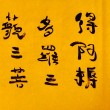 得阿耨
多羅三
藐三菩